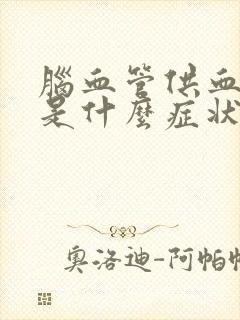 腦血管供血
是什麼症狀
奧洛迪-阿帕帕